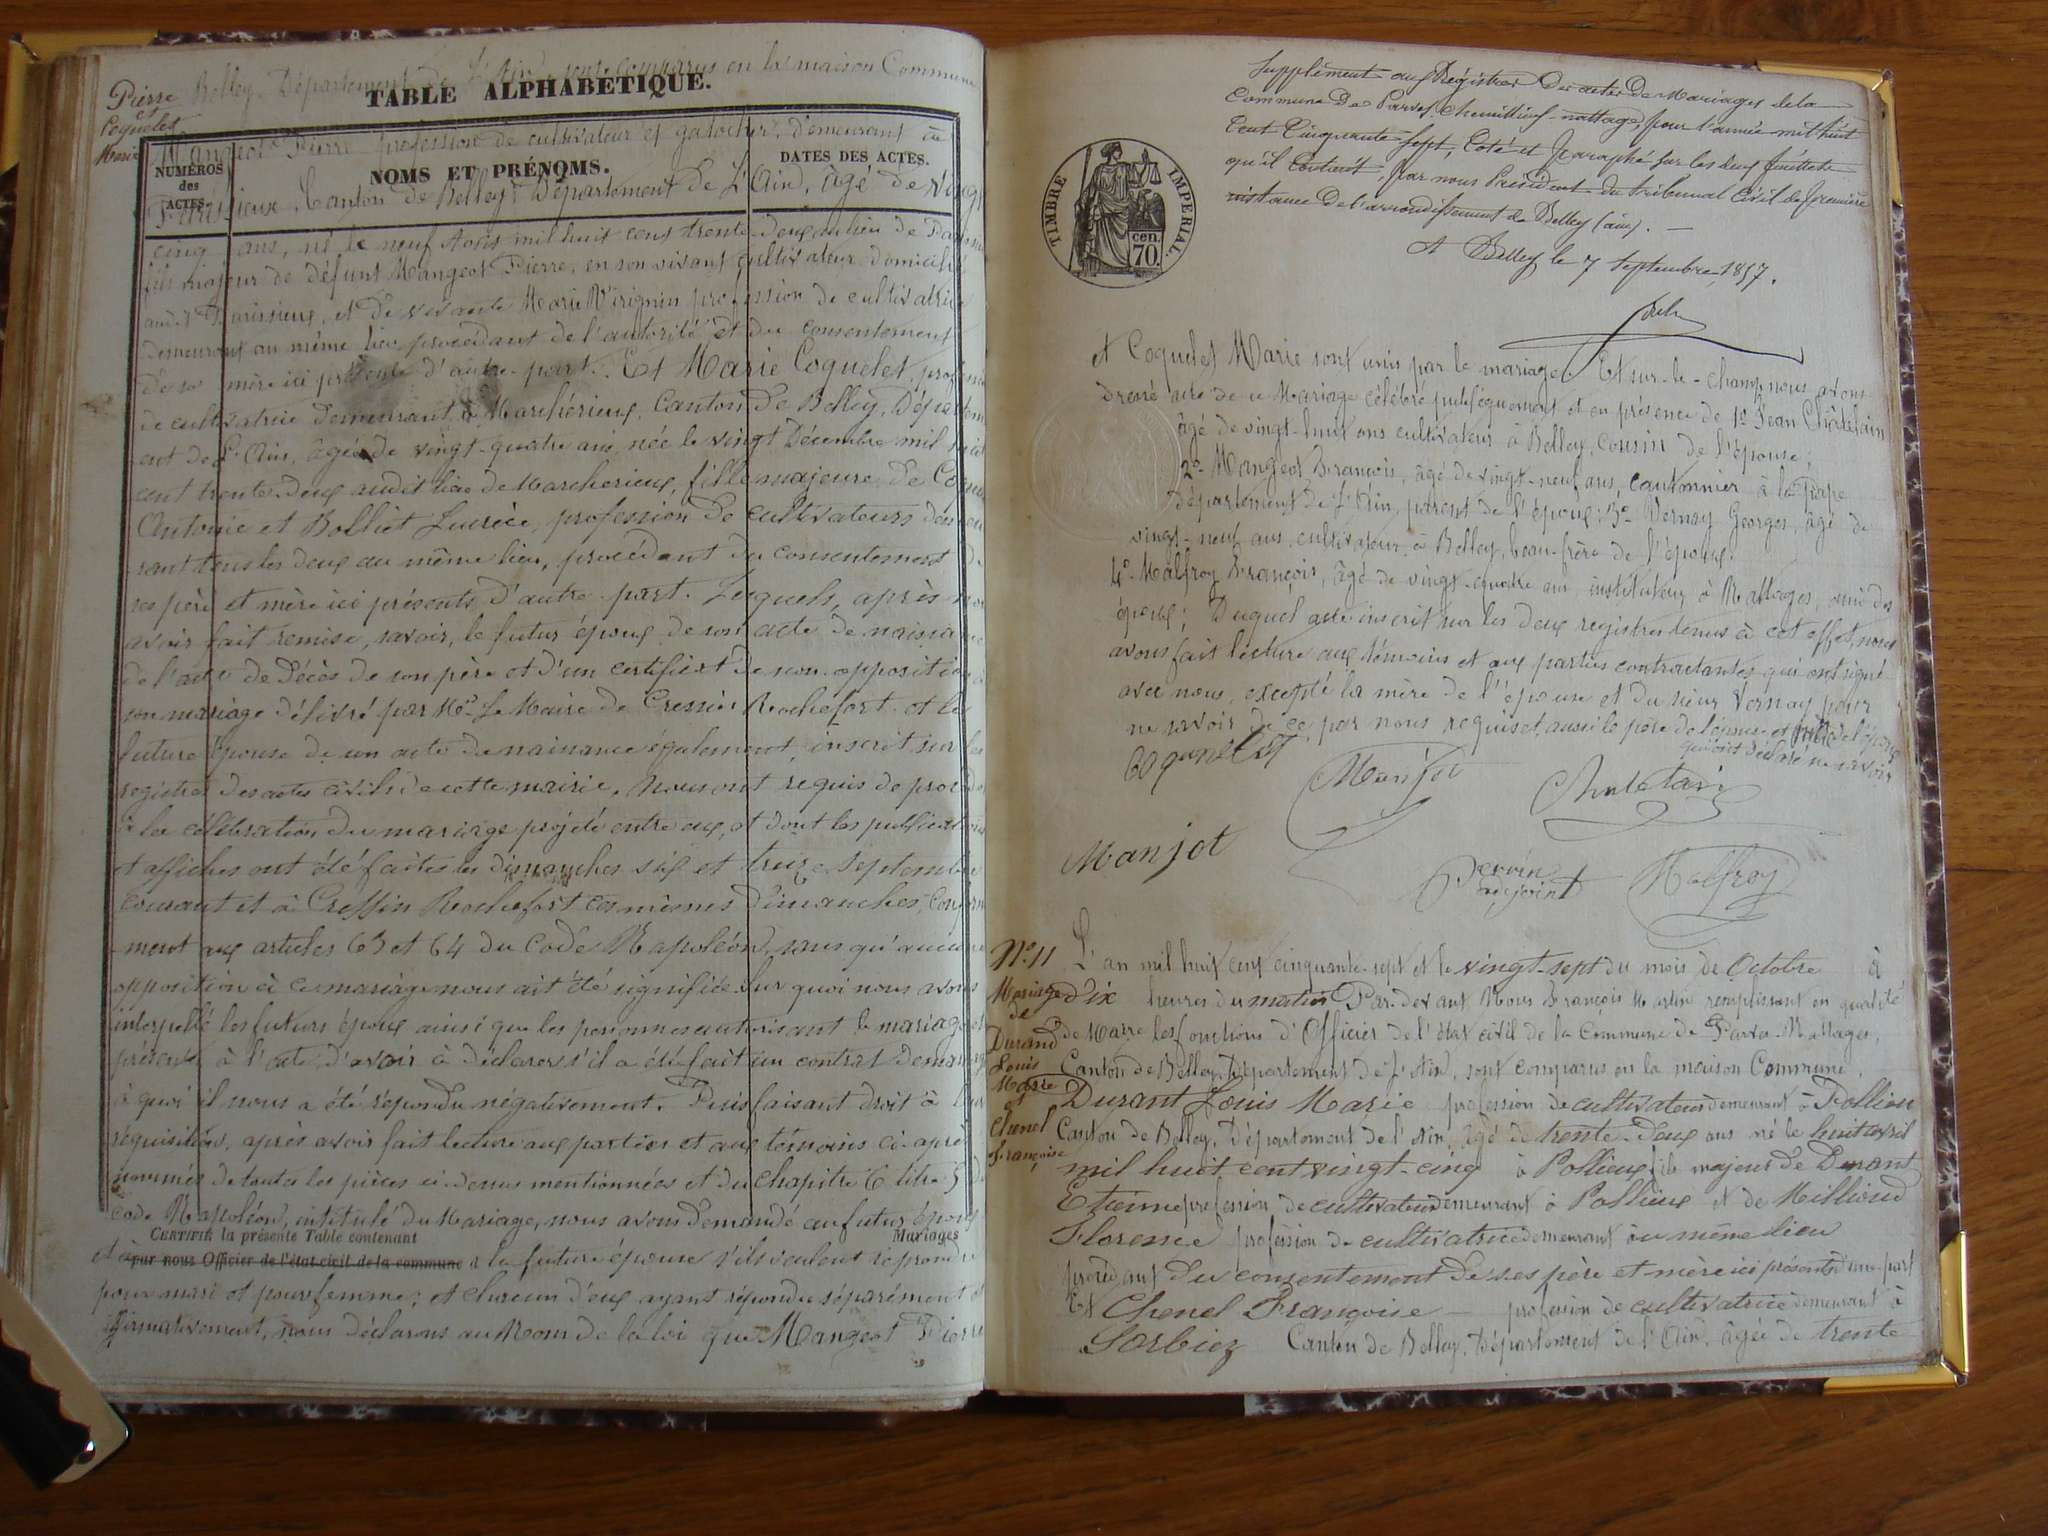 Belley, Département de L'Ain, sont comparus en la maison Commune
TABLE ALPHABÉTIQUE.
Pierre
et
Coquelet
Marie
Mangeot Pierre profession de cultivateur et galocher, demeurant à
NUMÉROS
des
ACTES.
NOMS ET PRÉNOMS.
DATES DES ACTES.
Canton de Belley, Département de L'Ain, âgé de vingt
cinq ans, né le neuf Août mil huit cent trente-deux au lieu de
fils majeur de défunt Mangeot Pierre, en son vivant cultivateur domicilié
et de vivante Marie Virignin profession de cultivatrice
demeurant au même lieu procédant de l'autorité et du consentement
de sa mère ici présente d'autre part. Et Marie Coquelet, profession
de cultivatrice demeurant à Marchérieux, Canton de Belley, Départem
ent de L'Ain, âgée de vingt-quatre ans née le vingt Décembre mil huit
cent trente-deux audit lieu de Marcherieux, fille majeure de
Antonie et Bolliet Lucrèce, profession de cultivateurs demeu
rant tous les deux au même lieu, procédant du consentement de
ses père et mère ici présents d'autre part. Lesquels, après nous
avoir fait remise, savoir, le futur époux de son acte de naissance
de l'acte de décès de son père et d'un certificat de non opposition à
son mariage délivré par Mr. Le Maire de Cressin Rochefort et la
future épouse de son acte de naissance également, inscrit sur les
registres des actes civils de cette mairie. Nous ont requis de procéder
à la célébration du mariage projeté entre eux, et dont les publications
et affiches ont été faites les dimanches six et treize Septembre
courant et à Cressin Rochefort ces mêmes dimanches, Conformé
ment aux articles 63 et 64 du Code Napoléon, sans qu'aucune
opposition à ce mariage nous ait été signifiée. Sur quoi nous avons
interpellé les futurs époux ainsi que les personnes autorisant le mariage et
présentes à l'acte, d'avoir à déclarer s'il a été fait un contrat de mariage
à quoi il nous a été répondu négativement. Puis faisant droit à leur
réquisition, après avoir fait lecture aux parties et aux témoins ci-après
nommés de toutes les pièces ci-dessus mentionnées et du chapitre 6 titre 5 du
Code Napoléon, intitulé du Mariage, nous avons demandé au futur époux
CERTIFIÉ la présente Table contenant Mariages
par nous Officier de l'état civil de la commune
et à la future épouse s'ils veulent se prendre
pour mari et pour femme; et chacun d'eux ayant répondu séparément et
affirmativement, nous déclarons au Nom de la loi que Mangeot Pierre
Supplément aux Régistres Des actes De Mariages de la
Commune De Parves, Chemillieu-nattage, pour l'année mil huit
Cent Cinquante-sept, Coté et Paraphé sur les deux feuillets
qu'il Contient, par nous Président du tribunal Civil de première
instance De l'arrondissement de Belley (ain). —
A Belley le 7 Septembre 1857.
TIMBRE IMPERIAL.
cen.
70.
et Coquelet Marie sont unis par le mariage. Et sur-le-champ nous avons
dressé acte de ce Mariage célébré publiquement et en présence de 1º Jean Châtelain
âgé de vingt-huit ans cultivateur à Belley, cousin de l'épouse;
2º Mangeot François, âgé de vingt-neuf ans, cantonnier à la Pape
département de L'Ain, parent de l'époux; 3º Vernay Georges, âgé de
vingt-neuf ans, cultivateur à Belley, beau-frère de l'époux.
4º Malfroy François, âgé de vingt-quatre ans instituteur à Nattages, ami des
époux; Duquel acte inscrit sur les deux registres tenus à cet effet, nous
avons fait lecture aux témoins et aux parties contractantes qui ont signé
avec nous, excepté la mère de l'épouse et du sieur Vernay pour
ne savoir de ce par nous requis et aussi le père de l'épouse et mère de l'époux
qui ont déclaré ne savoir
Coquelet
Manjot
Chatelain
Manjot
Pervin
adjoint
Malfroy
Nº. 11
Mariage
de
Durand
Louis
Marie
et
Chenel
Françoise
L'an mil huit cent cinquante-sept et le vingt-sept du mois de Octobre à
dix heures du matin Par-devant Nous François Martin remplissant en qualité
de Maire les fonctions d'Officier de l'état civil de la Commune de Parves-Nattages,
Canton de Belley, Département de L'Ain, sont comparus en la maison Commune,
Durant Louis Marie profession de cultivateur demeurant à Pollieu
Canton de Belley, Département de l'Ain, âgé de trente-deux ans né le huit avril
mil huit cent vingt-cinq à Pollieux fils majeur de Durant
Etienne profession de cultivateur demeurant à Pollieux et de Milliond
Florence profession de cultivatrice demeurant au même lieu
procédant du consentement de ses père et mère ici présents d'une part
Et Chenel Françoise — profession de cultivatrice demeurant à
Sorbiez Canton de Belley, Département de l'Ain, âgée de trente